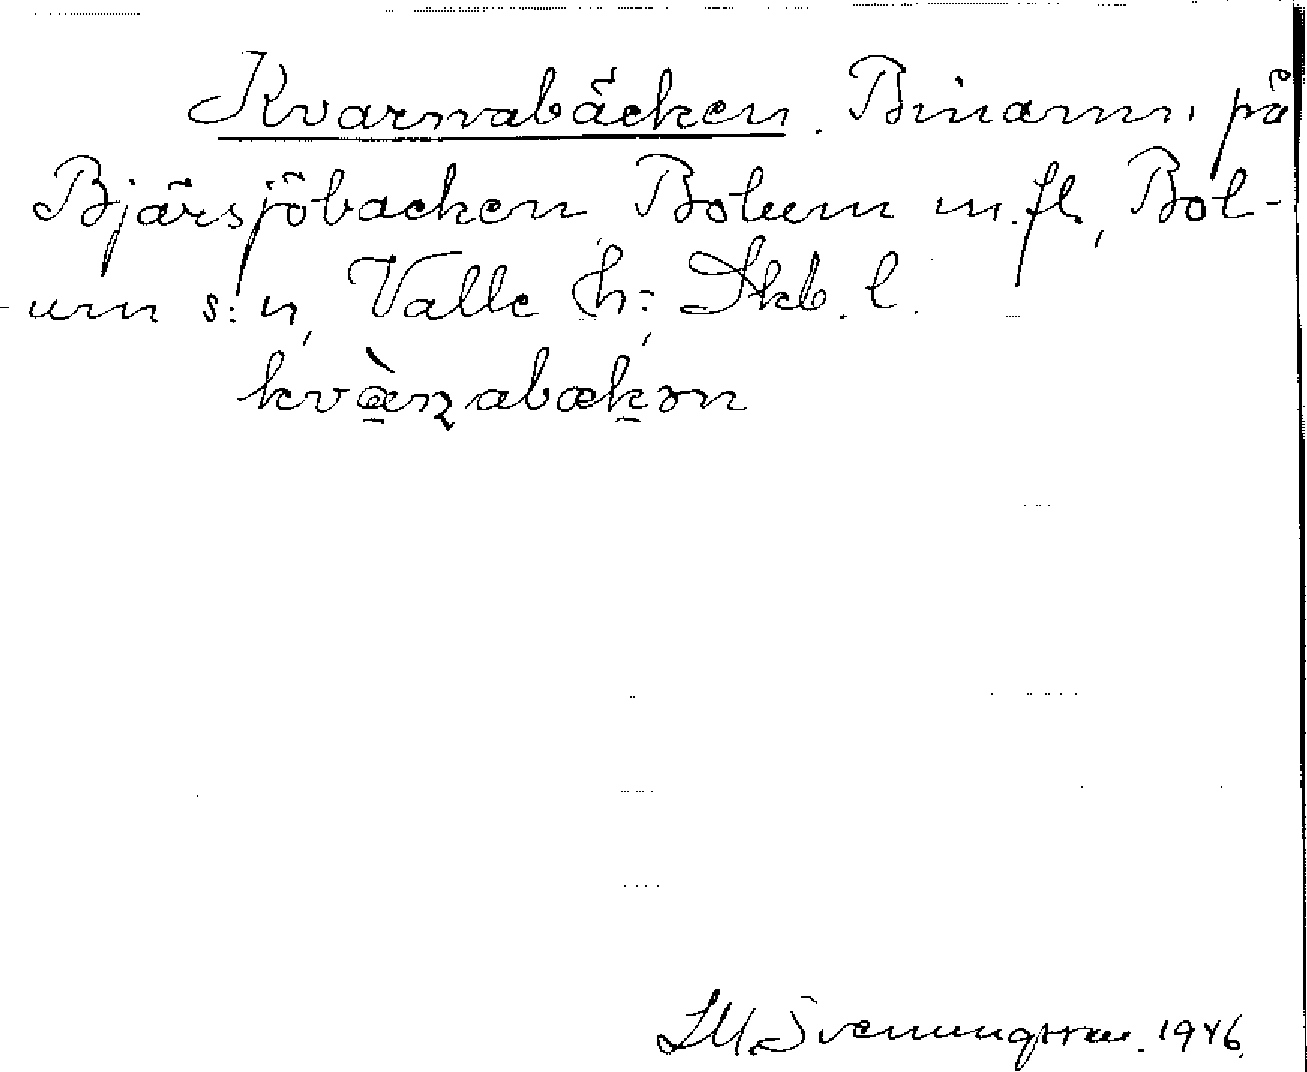 Kvarnabäcken. Binamn på
Bjärsjöbacken Bolum m.fl., Bol-
um s:n, Valle h:, Skb. l.
kvànabækən
L.M. Svenungsson. 1946.